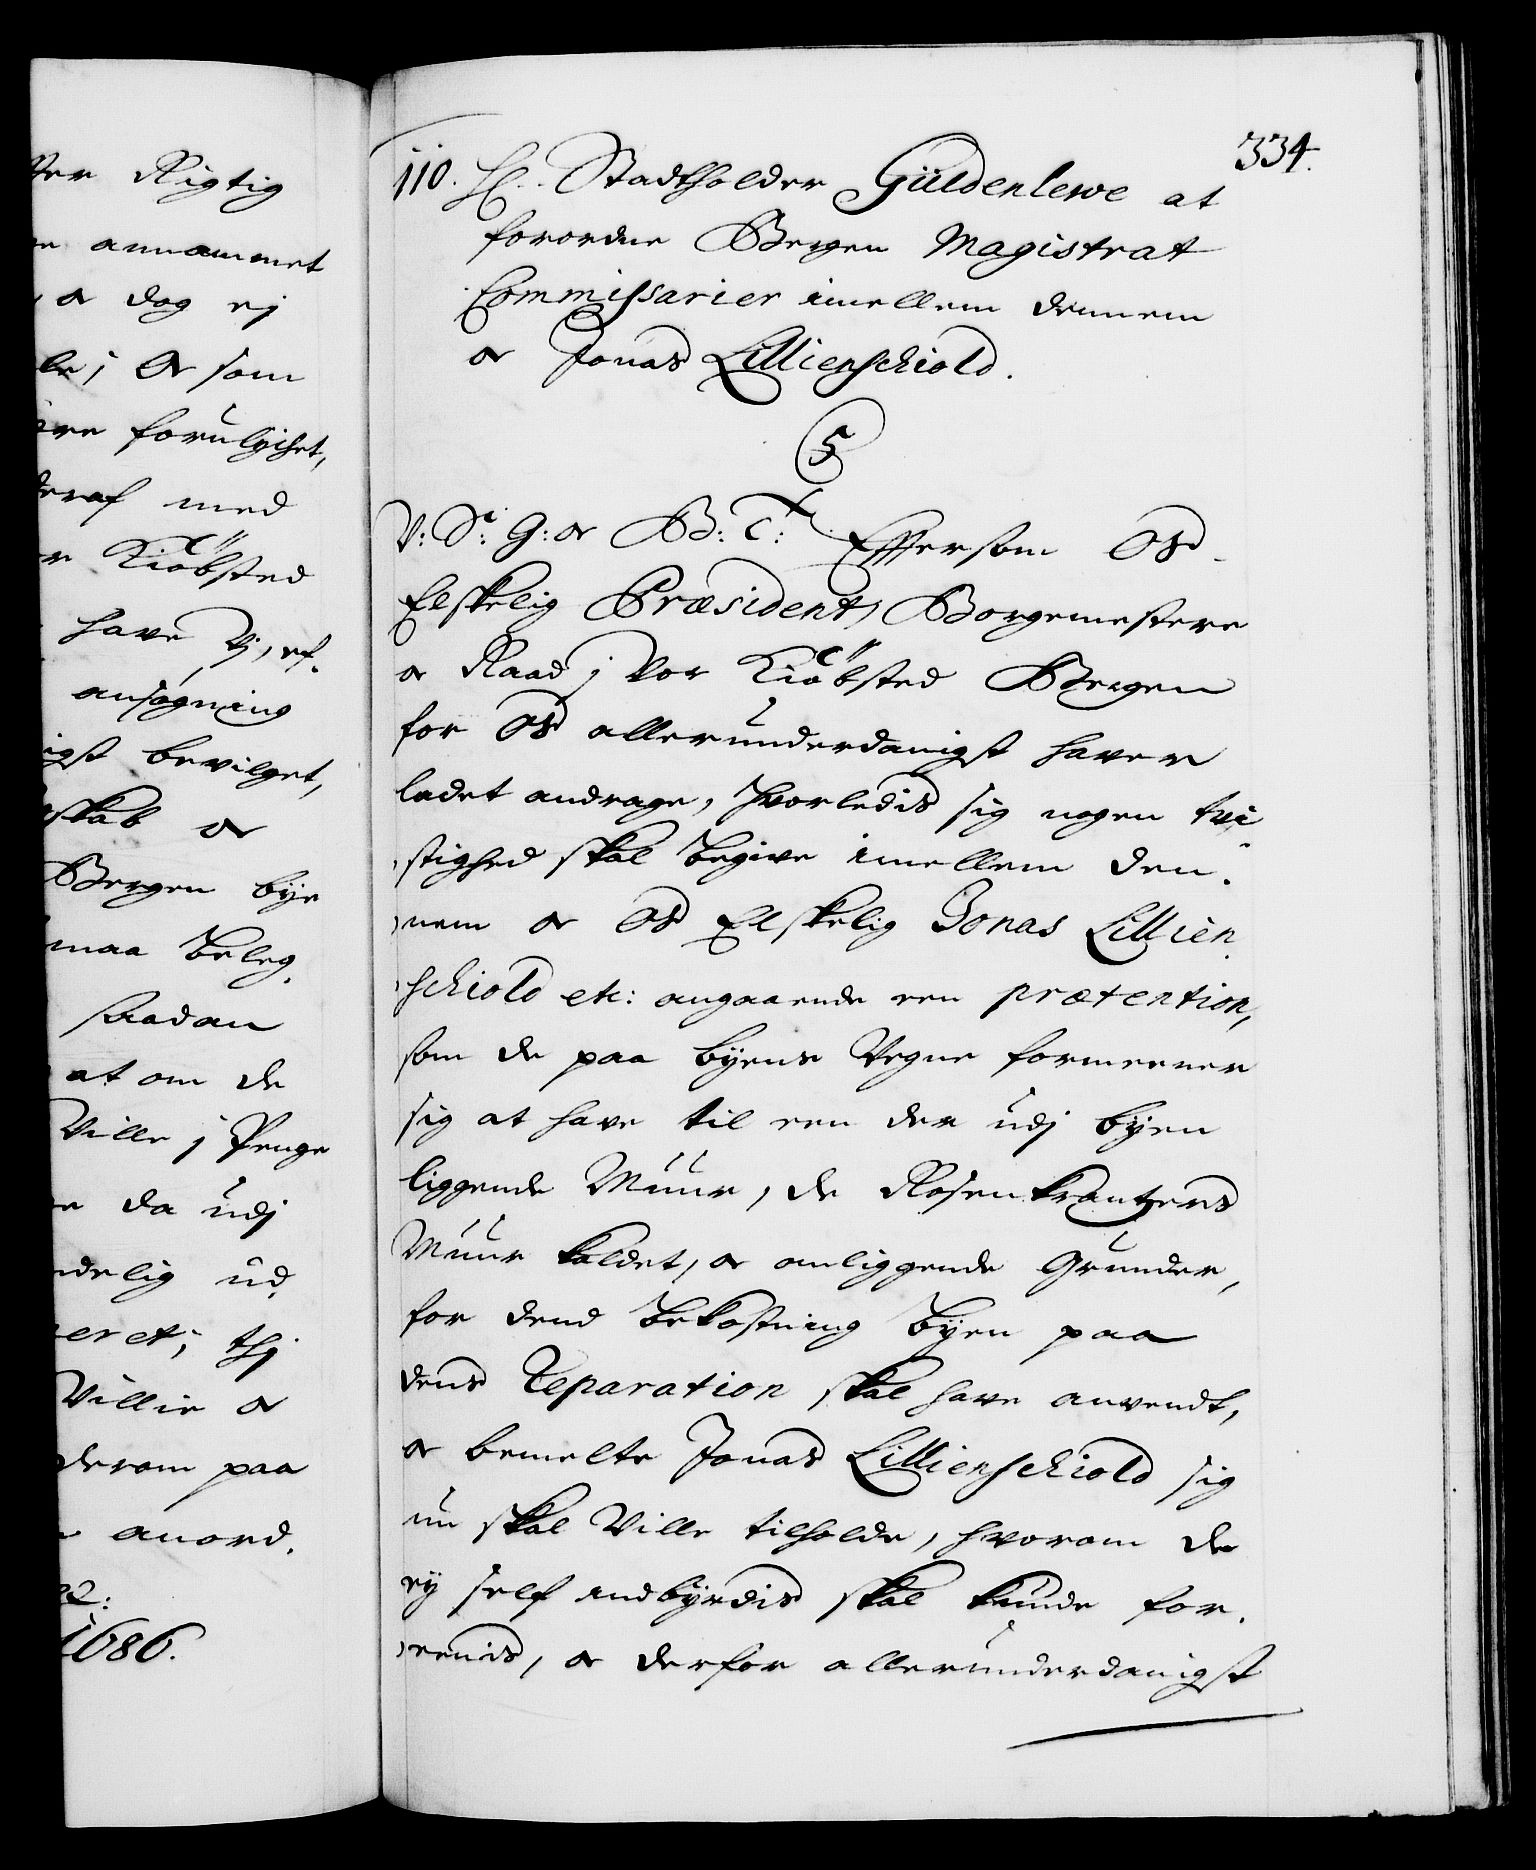 ter Rigtig
annammet
, og dog ej
le; Og som
ere forulyiset,
deraf med
r Kiøbsted
have Vj, ef-
ansøgning
igst bevilget,
skab og
Bergen bye
maa beleg-
saadan
at om de
Ville j Penge
da udj
delig ud-
eret; thj
Villie og
derom paa
anord-
22:
1686.
334.
110. H. Stadtholder Güldenlewe at
forordne Bergen Magistrat
Commissarier imellem dennem
og Jonas Lillienschiold.
5
V: S: G: og B: T: Eftersom Os
Elskelig Præsident, Borgemestere
og Raad j Vor Kiøbsted Bergen
for Os allerunderdanigst haver
ladet andrage, hvorledis sig nogen tvi-
stighed skal begive imellem den-
nem og Os Elskelig Jonas Lillien-
schiold etc: angaaende een prætention,
som de paa byens Vegne formeener
sig at have til een der udj byen
liggende Muur, de Rosenkrantzers
Muur kaldet, og omliggende Grunder,
for dend bekostning byen paa
dens Reparation skal have anvendt,
og bemelte Jonas Lillienschiold sig
nu skal Ville tilholde, hvorom de
ej self indbyrdis skal kunde for-
eenis, og derfor allerunderdanigst